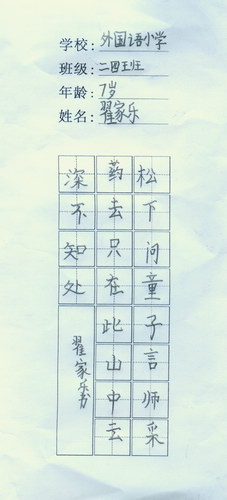 学校：外国语小学
班级：二四班
年龄：7岁
姓名：翟家乐
松下问童子言师采
药去只在此山中云
深不知处
翟家乐书